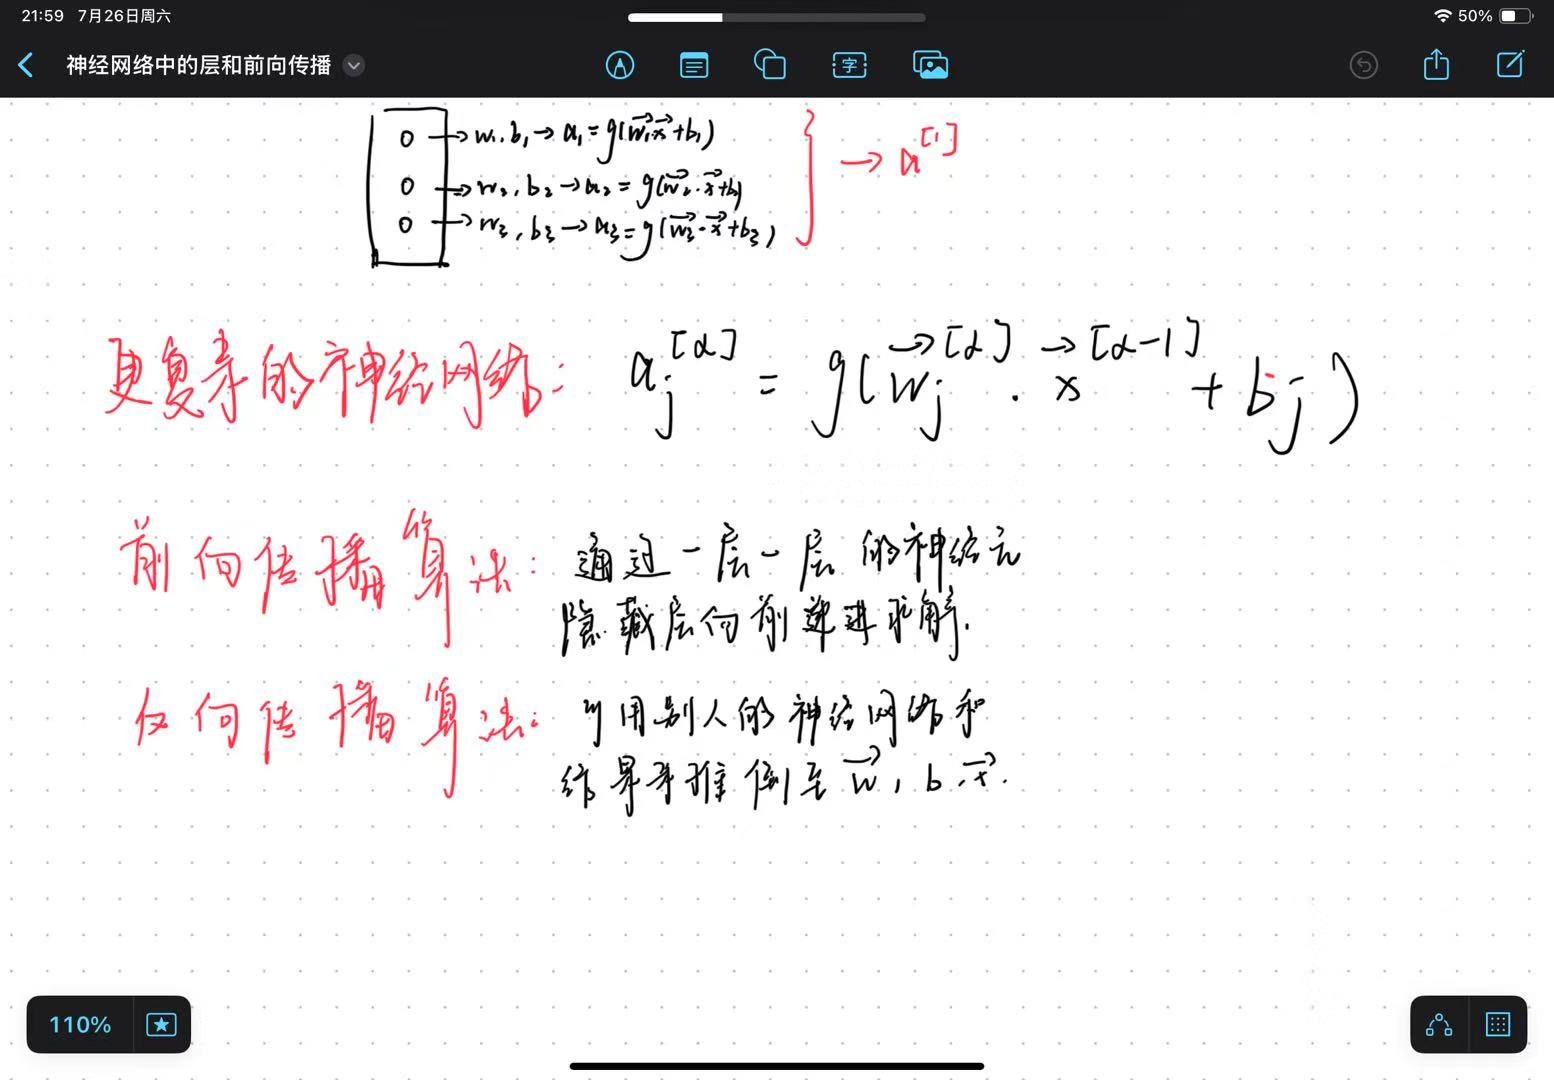 21:59 7月26日周六
50%
神经网络中的层和前向传播
字
→w₁.b₁→a₁=g(w⃗₁x⃗+b₁)
→w₂,b₂→a₂=g(w⃗₂·x⃗+b₂)
→w₃,b₃→a₃=g(w⃗₃·x⃗+b₃)
→a^[1]
更复杂的神经网络: a_j^[α] = g(w⃗_j^[α] · x⃗^[α-1] + b_j)
前向传播算法: 通过一层一层的神经元
隐藏层向前递进求解.
反向传播算法: 可用别人的神经网络和
结果来推倒至w⃗,b.x⃗.
110%